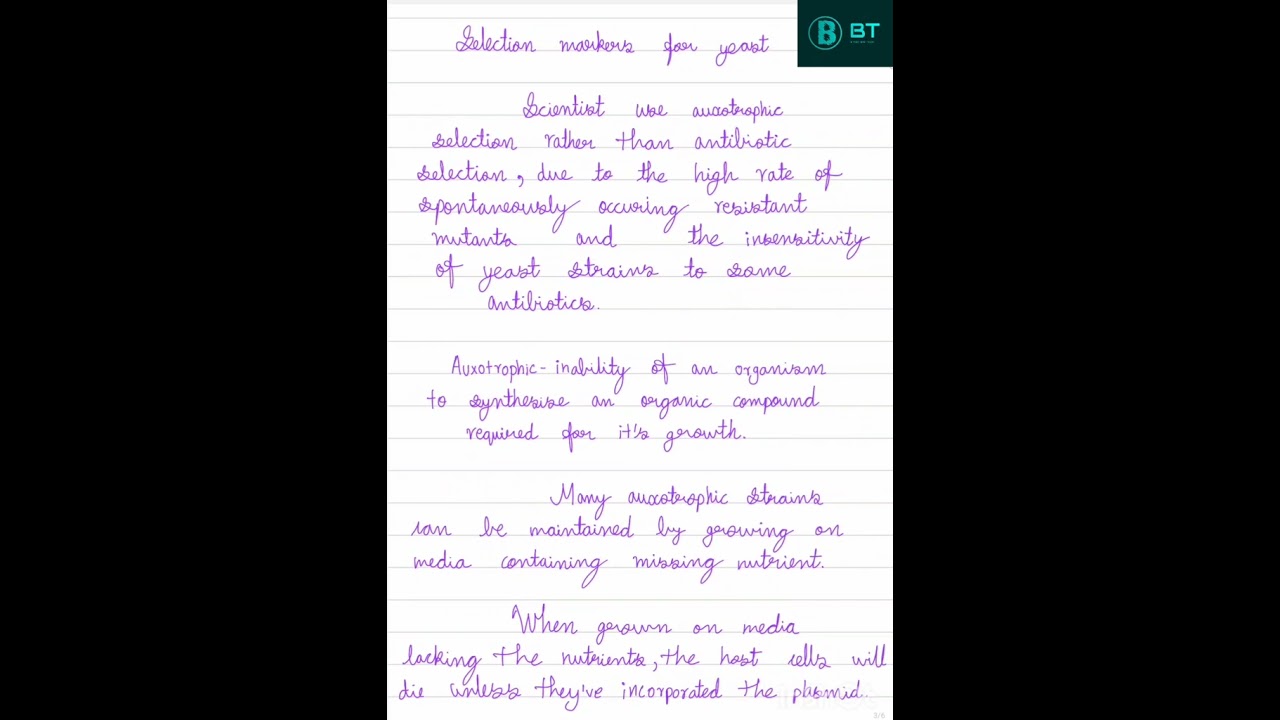 Selection markers for yeast
BT
Scientist use auxotrophic
selection rather than antibiotic
selection, due to the high rate of
spontaneously occuring resistant
mutants and the insensitivity
of yeast strains to some
antibiotics.
Auxotrophic - inability of an organism
to synthesise an organic compound
required for it's growth.
Many auxotrophic strains
can be maintained by growing on
media containing missing nutrient.
When grown on media
lacking the nutrients, the host cells will
die unless they've incorporated the plasmid.
3/6